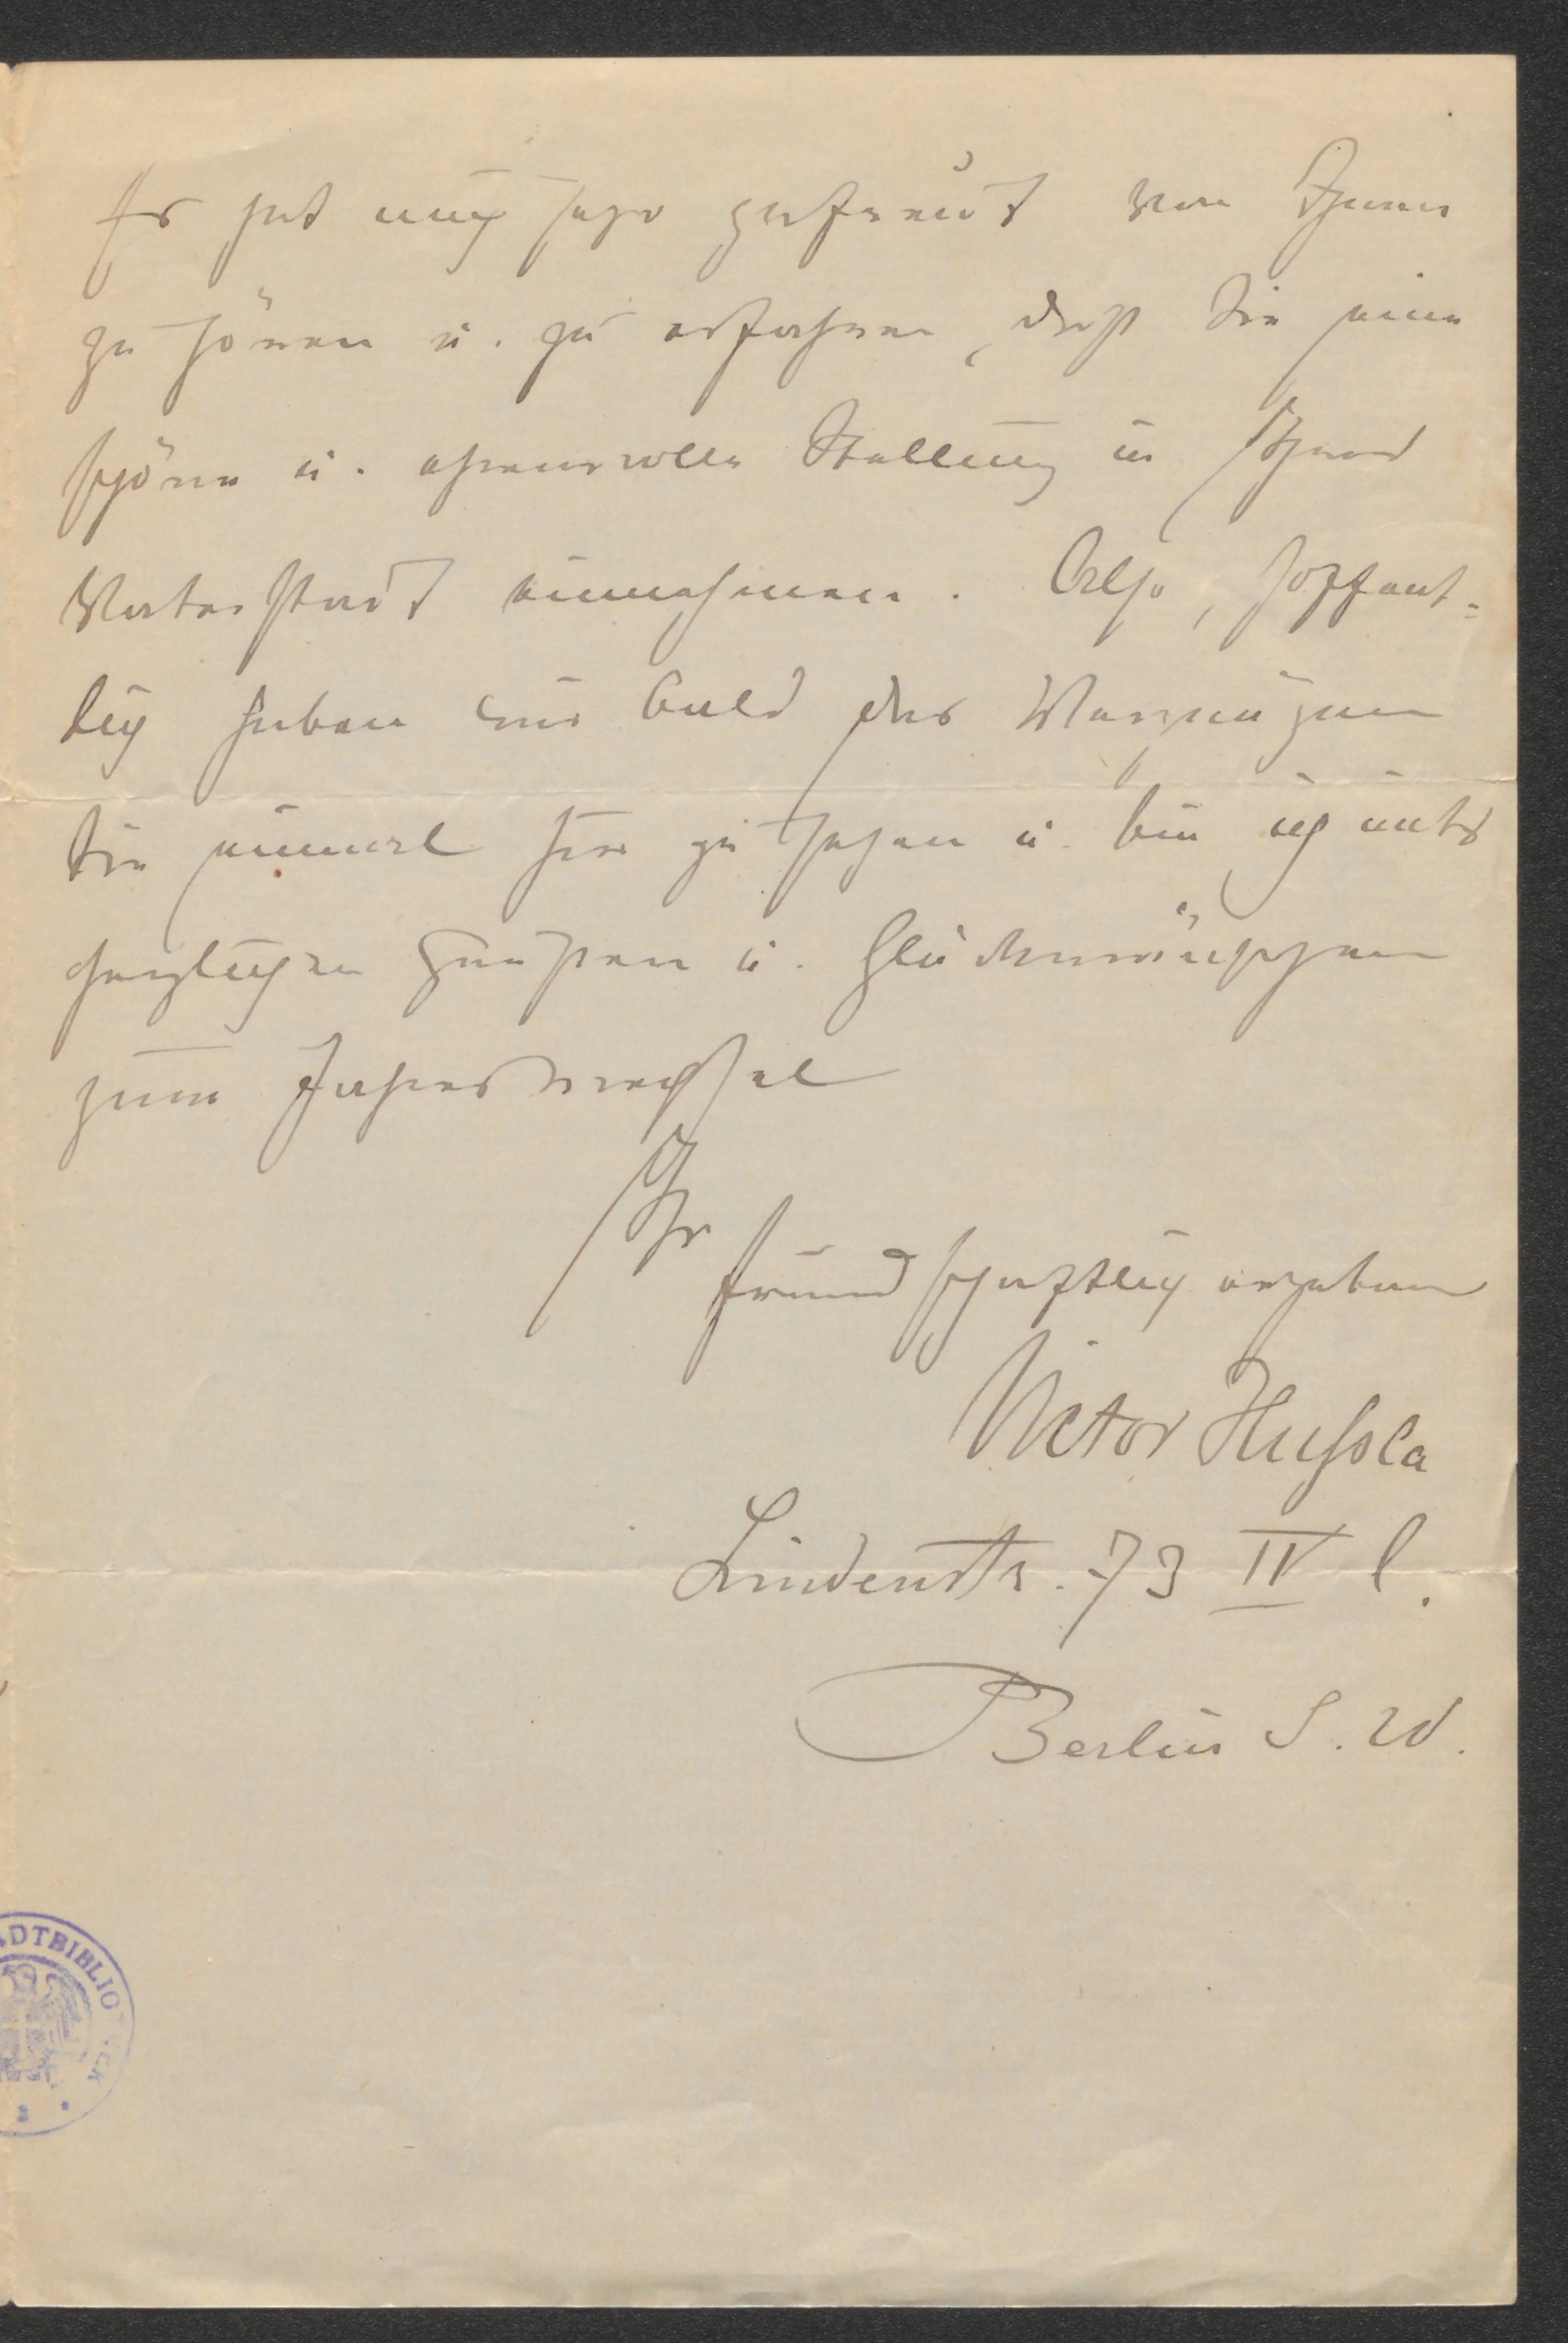 Es hat mich sehr gefreut von Ihnen
zu hören u. zu erfahren, daß Sie eine
schöne u. ehrenvolle Stellung in Ihrer
Vaterstadt einnehmen. Also, hoffent-
lich haben wir bald das Vergnügen
Sie einmal hier zu sehen u. bin ich unter
herzlichen Grüßen u. Glückwünschen
zum Jahreswechsel
Ihr
freundschaftlich ergebener
Victor Hußla
Lindenstr. 73 IV l.
Berlin S. W.
ADTBIBLIO